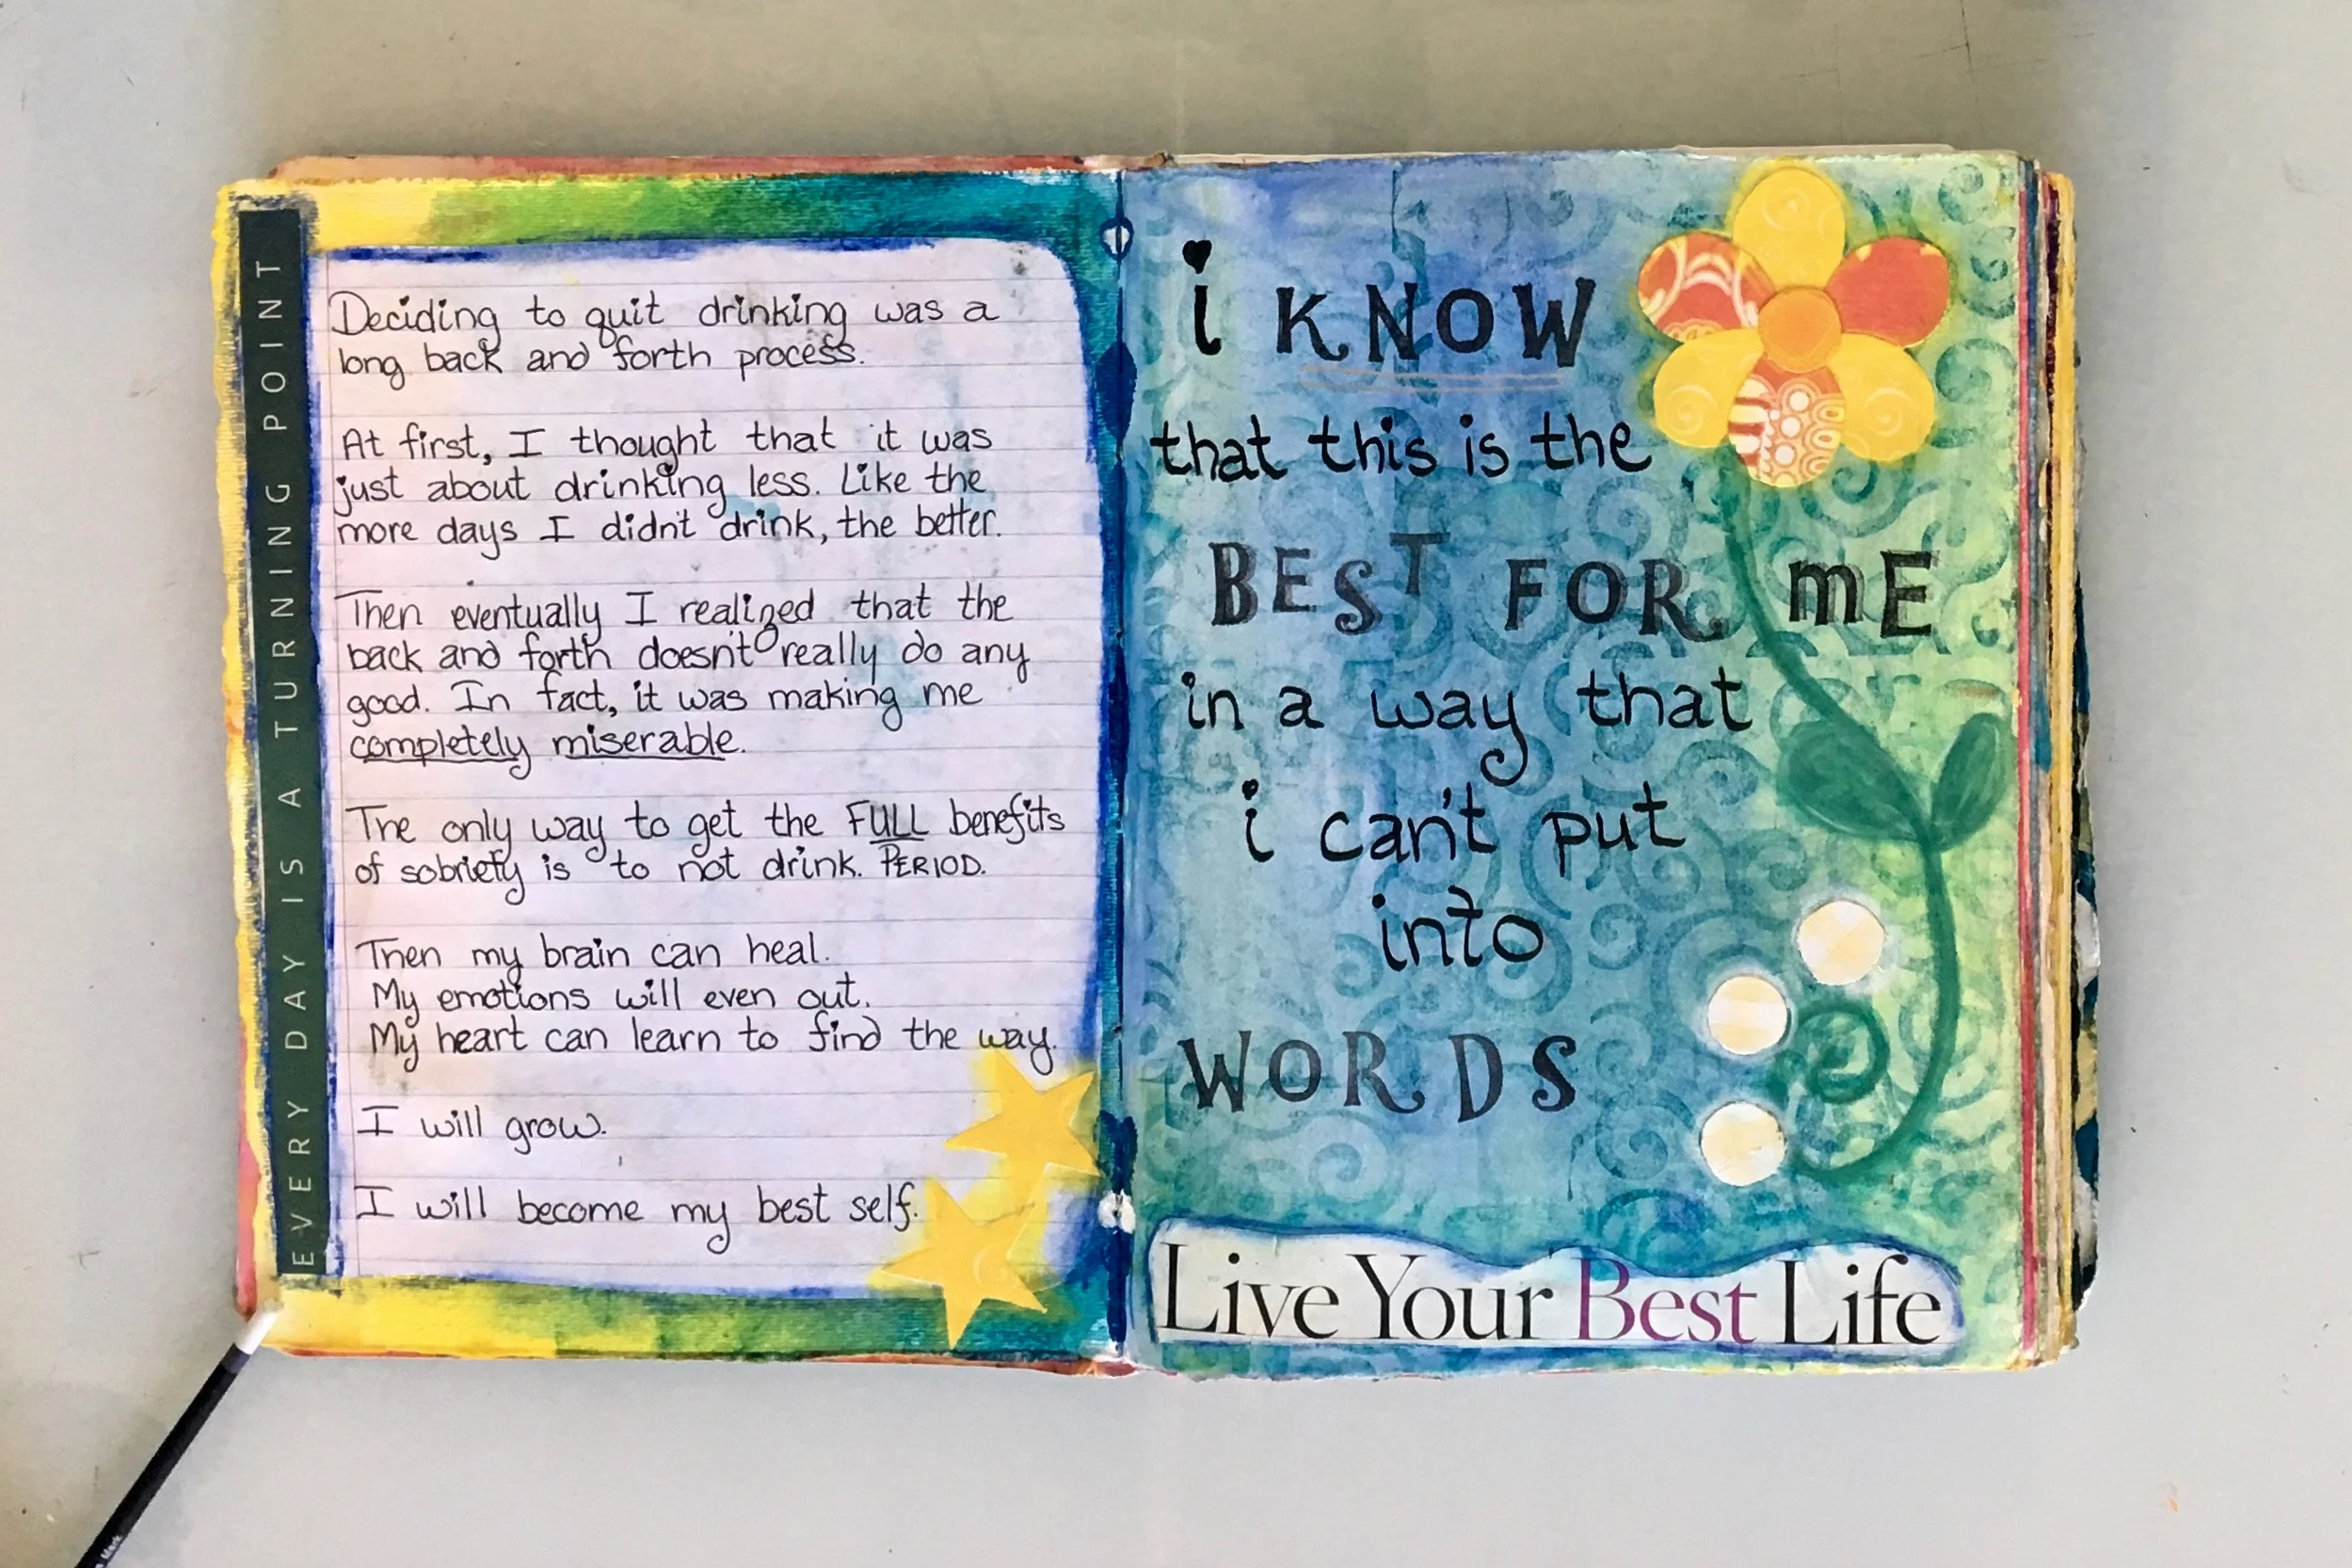 EVERY DAY IS A TURNING POINT
Deciding to quit drinking was a
long back and forth process.
At first, I thought that it was
just about drinking less. Like the
more days I didn't drink, the better.
Then eventually I realized that the
back and forth doesn't really do any
good. In fact, it was making me
completely miserable.
The only way to get the FULL benefits
of sobriety is to not drink. PERIOD.
Then my brain can heal.
My emotions will even out.
My heart can learn to find the way.
I will grow.
I will become my best self.
i KNOW
that this is the
BEST FOR mE
in a way that
i can't put
into
WORDS
Live Your Best Life